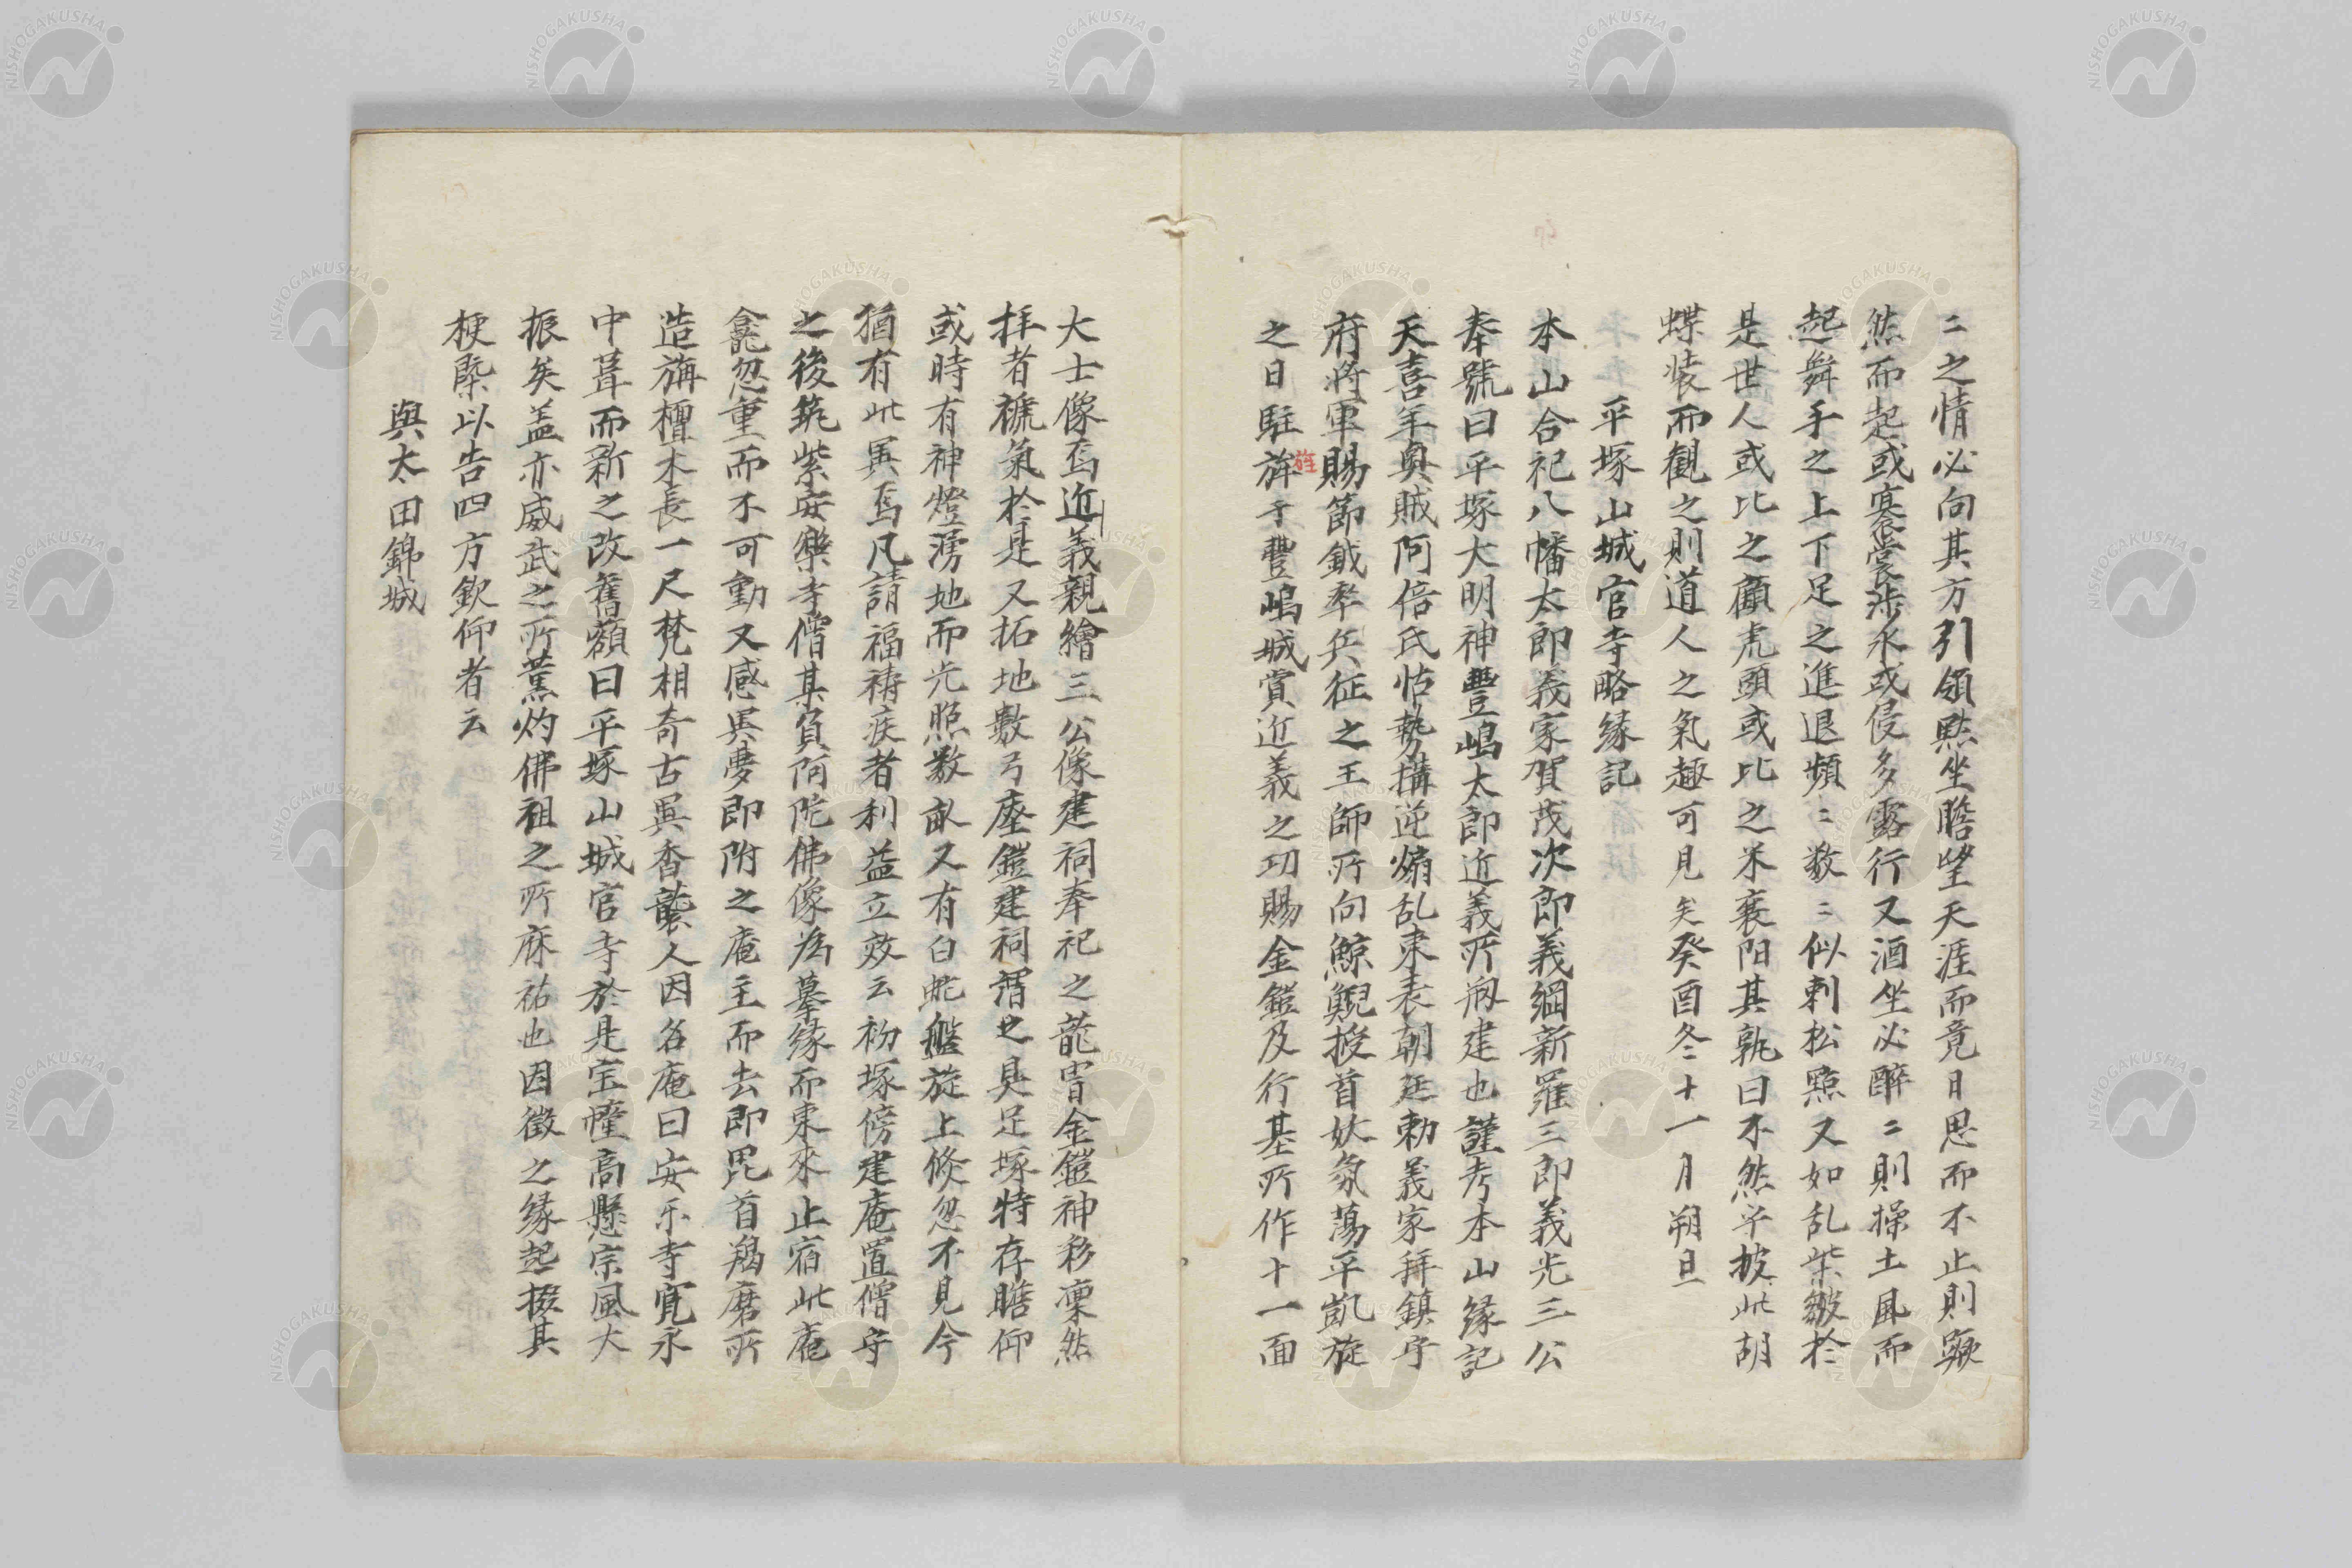 〻之情必向其方引領黙坐瞻望天涯而竟日思而不止則蹶
然而起或褰裳渉水或侵多露行又酒坐必醉〻則操土風而
起舞手之上下足之進退頻〻数〻似刺松點又如乱柴皴於
是世人或比之顧虎頭或比之米襄陽其孰曰不然乎披此胡
蝶装而観之則道人之氣趣可見矣癸酉冬十一月朔旦
平塚山城官寺略縁記
本山合祀八幡太郎義家賀茂次郎義綱新羅三郎義光三公
奉號曰平塚大明神豐嶋太郎近義所剏建也謹考本山縁記
天喜年奥賊阿倍氏怙勢搆逆煽乱東表朝廷勅義家拜鎮守
府将軍賜節鉞率兵征之王師所向鯨鯢授首妖氛蕩平凱旋
之日駐旌于豐嶋城賞近義之功賜金鎧及行基所作十一面
旌
大士像焉近義親繪三公像建祠奉祀之蔵冑金鎧神彩凜然
拝者褫氣於是又拓地敷弓座鎧建祠謂之具足塚特存瞻仰
或時有神燈湧地而光照数畝又有白蛇盤旋上倐忽不見今
猶有此異焉凡請福祷疾者利益立效云初塚傍建庵置僧守
之後筑紫安樂寺僧某負阿陀佛像為募縁而東來止宿此庵
龕忽重而不可動又感異夢即附之庵主而去即毘首羯磨所
造旃檀木長一尺梵相奇古異香襲人因名庵曰安乐寺寛永
中葺而新之改舊額曰平塚山城官寺於是宝幢高懸宗風大
振矣盖亦威武之所薫灼佛祖之所庥祐也因徴之縁起掇其
梗槩以告四方欽仰者云
與太田錦城